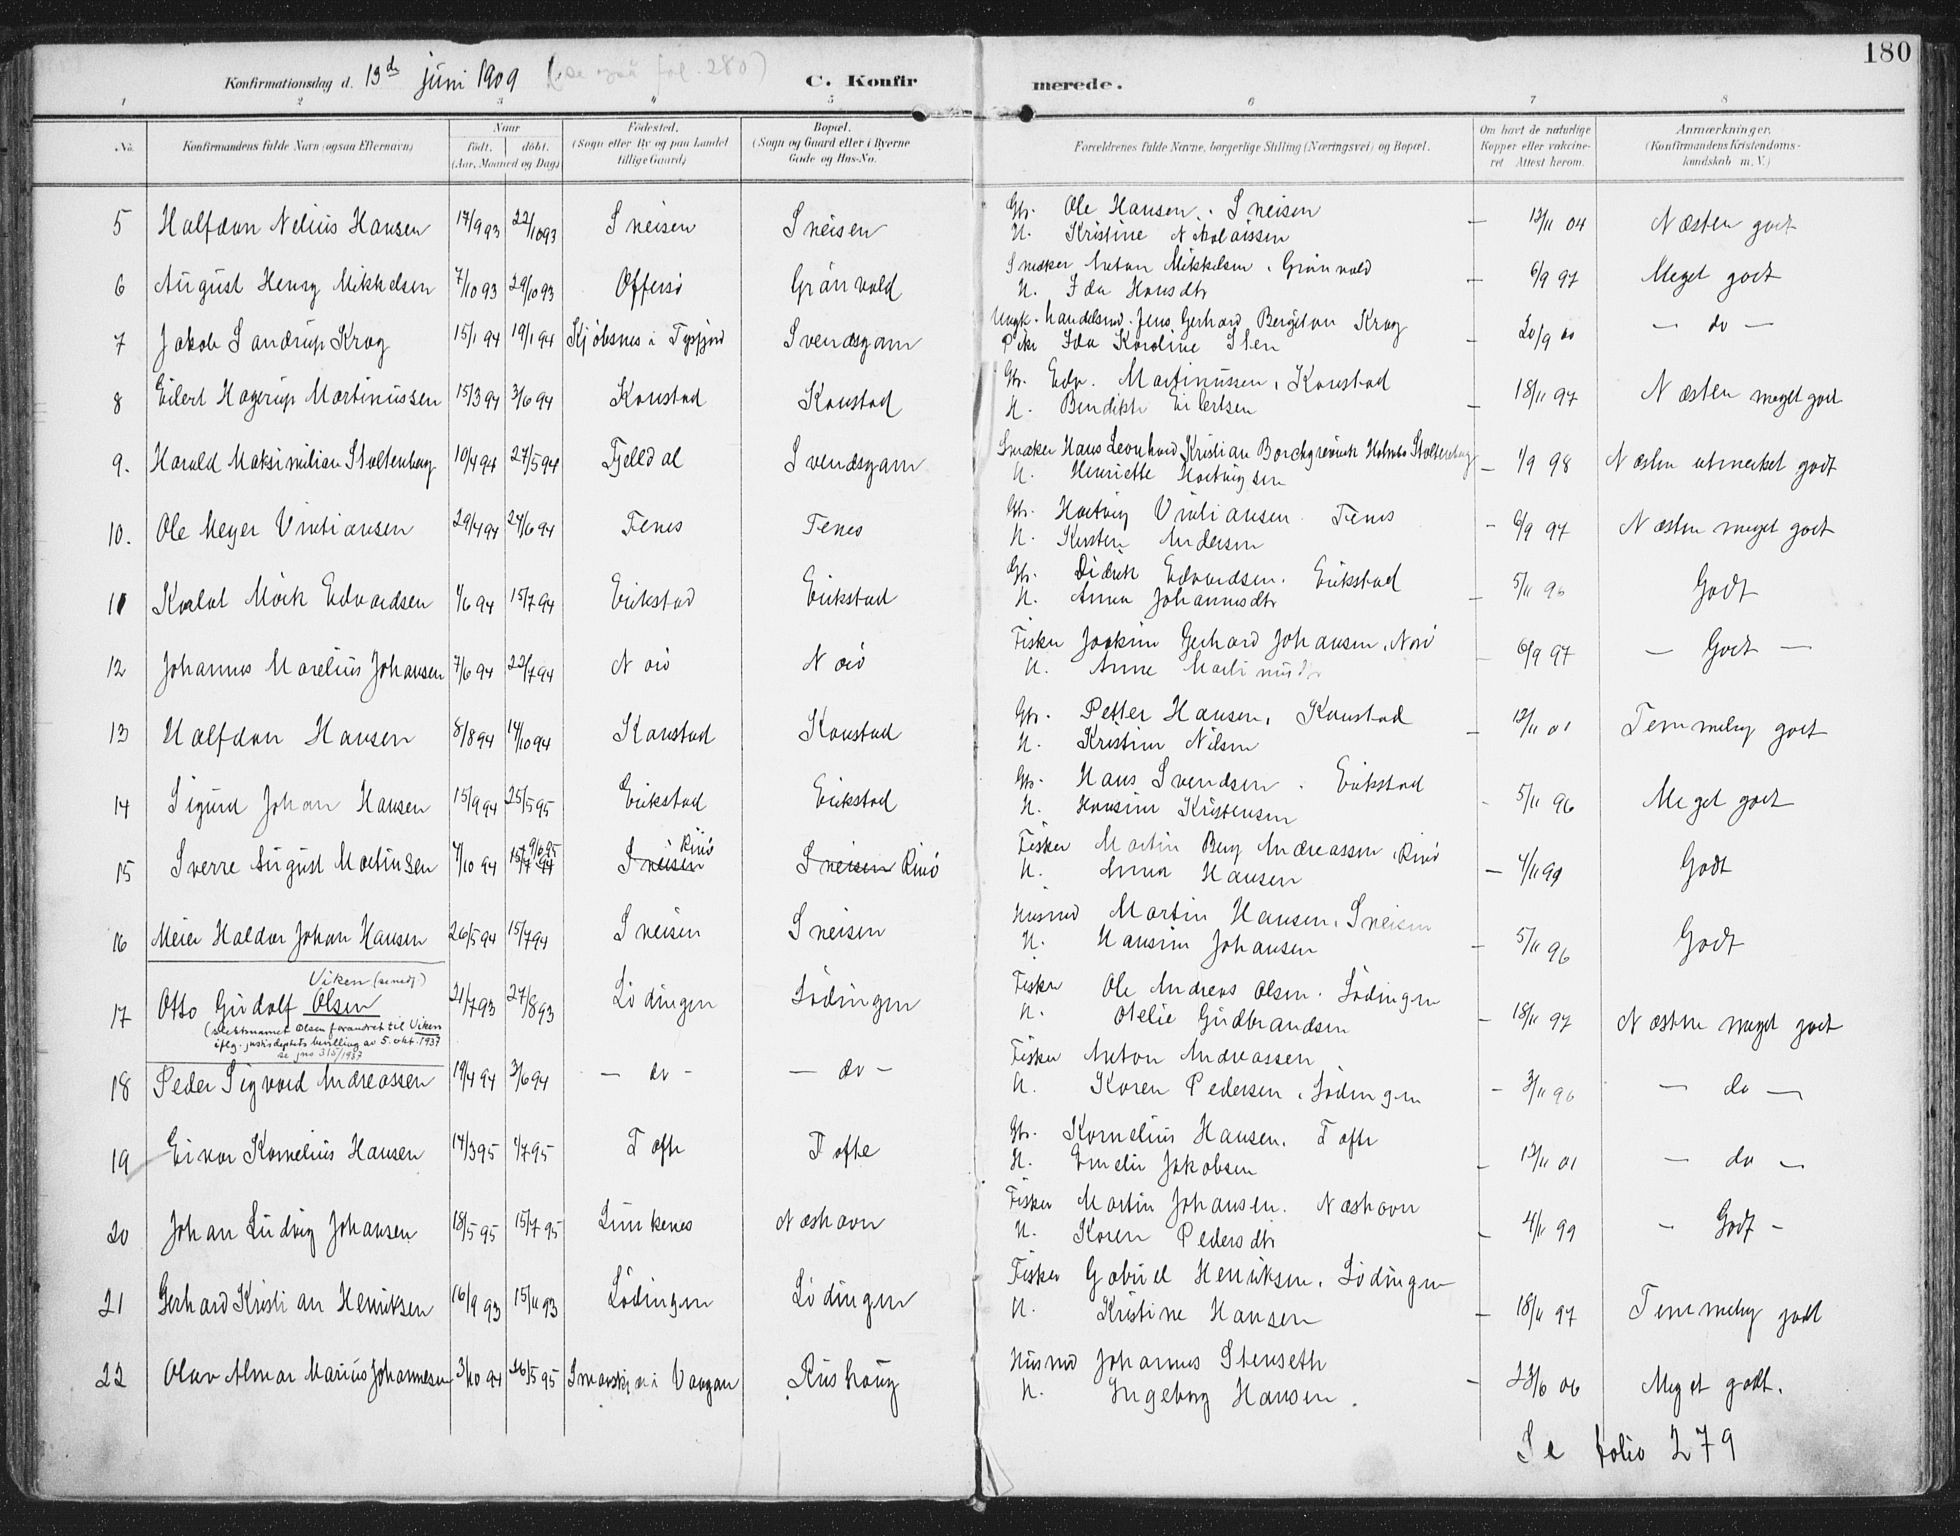 180
Konfirmationsdag d. 13de juni 1909 (se også fol. 280)
C. Konfirmerede.
1 2 3 4 5 6 7 8
No. Konfirmandens fulde Navn (ogsaa Efternavn) Naar født. døbt. (Aar, Maaned og Dag) Fødested. (Sogn eller By og paa Landet tillige Gaard) Bopæl. (Sogn og Gaard eller i Byerne Gade og Hus-No. Forældrenes fulde Navne, borgerlige Stilling (Næringsvei) og Bopæl. Om havt de naturlige Kopper eller vaccineret Attest herom. Anmærkninger. (Konfirmandens Kristendomskundskab m. V.)
5 Halfdan Nelius Hansen 17/9 93 22/10 93 Sneisen Sneisen Gbr. Ole Hansen. Sneisen — 12/11 04 Næsten godt
H. Kristine Nikolaissen
6 August Henry Mikkelsen 7/10 93 29/10 93 Offersø Grønvold Snedker Anton Mikkelsen. Grønvold — 6/9 97 Meget godt
H. Ida Hansdtr
7 Jakob Sandrup Krog 15/1 94 19/1 94 Kjøbsnes i Tysfjord Svendsgam Ungk. handelsmd. Jens Gerhard Bergiton Krog — 20/9 00 — do —
Pike Ida Karoline Sten
8 Eilert Hagerup Martinussen 15/3 94 3/6 94 Kanstad Kanstad Gbr. Edv. Martinussen, Kanstad — 18/11 97 Næsten meget godt
H. Bendikte Eilertsen
9. Harald Maksimilian Stoltenberg 10/4 94 27/5 94 Fjelldal Svendsgam Snedker Hans Leonhard Kristian Borchgrevink Holmbo Stoltenberg — 1/9 98 Næsten utmerket godt
H. Henriette Hartvigsen
10. Ole Meyer Kristiansen 29/4 94 24/6 94 Tenes Tenes Gbr. Hartvig Kristiansen. Tenes — 6/9 97 Næsten meget godt
H. Kirsten Andersen
11 Harlal Mörk Edvardsen 1/6 94 15/7 94 Erikstad Erikstad Gbr. Didrik Edvardsen. Erikstad — 5/11 96 Godt
H. Anna Johannesdtr
12 Johannes Marelius Johansen 7/6 94 22/7 94 Norø Norø Fisker Joakim Gerhard Johansen, Norø — 6/9 97 — Godt —
H. Anne Martinusdr
13 Halfdan Hansen 8/8 94 14/10 94 Kanstad Kanstad Gbr. Petter Hansen, Kanstad — 12/11 01 Temmelig godt
H. Kristine Nilsen
14 Sigurd Johan Hansen 15/9 94 25/5 95 Erikstad Erikstad Gbr. Hans Svendsen. Erikstad — 5/11 96 Meget godt
H. Hansine Kristensen
15 Sverre August Martinsen 7/10 94 15/7 94 9/6 95 Sneisen Rinø Sneisen Rinø Fisker Martin Berg Andreassen, Rinø — 4/11 99 Godt
H. Anna Hansen
16 Meier Haldor Johan Hansen 26/5 94 15/7 94 Sneisen Sneisen Husmd Martin Hansen, Sneisen — 5/11 96 Godt
H. Hansine Johansen
Viken (se nedf)
17 Otto Gudolf Olsen 21/7 93 27/8 93 Lødingen Lødingen Fisker Ole Andreas Olsen. Lødingen — 18/11 97 Næsten meget godt
(slektsnavnet Olsen forandret til Viken H. Otelie Gudbrandsen
iflg. justisdeptets bevilling av 5. okt. 1937
se jno 315/1937
18 Peder Sigvard Andreassen 19/4 94 3/6 94 — do — — do — Fisker Anton Andreassen — 3/11 96 — do —
H. Karen Pedersen, Lødingen
19 Einar Kornelius Hansen 14/3 95 1/7 95 Tofte Tofte Gbr. Kornelius Hansen. Tofte — 12/11 01 — do —
H. Emelie Jakobsen
20 Johan Ludvig Johansen 18/5 95 15/7 95 Lunkenes Næshavn Fisker Martin Johansen. Næshavn — 4/11 99 — Godt —
H. Karen Pedersdtr
21 Gerhard Kristian Henriksen 16/9 93 15/11 93 Lødingen Lødingen Fisker Gabriel Henriksen, Lødingen — 18/11 97 Temmelig godt
H. Kristine Hansen
22 Olav Almar Marius Johannesen 3/10 94 26/5 95 Svarskjær i Vaagan Rushaug Husmd Johannes Stenseth — 23/6 06 Meget godt.
H. Ingeborg Hansen.
Se folio 279